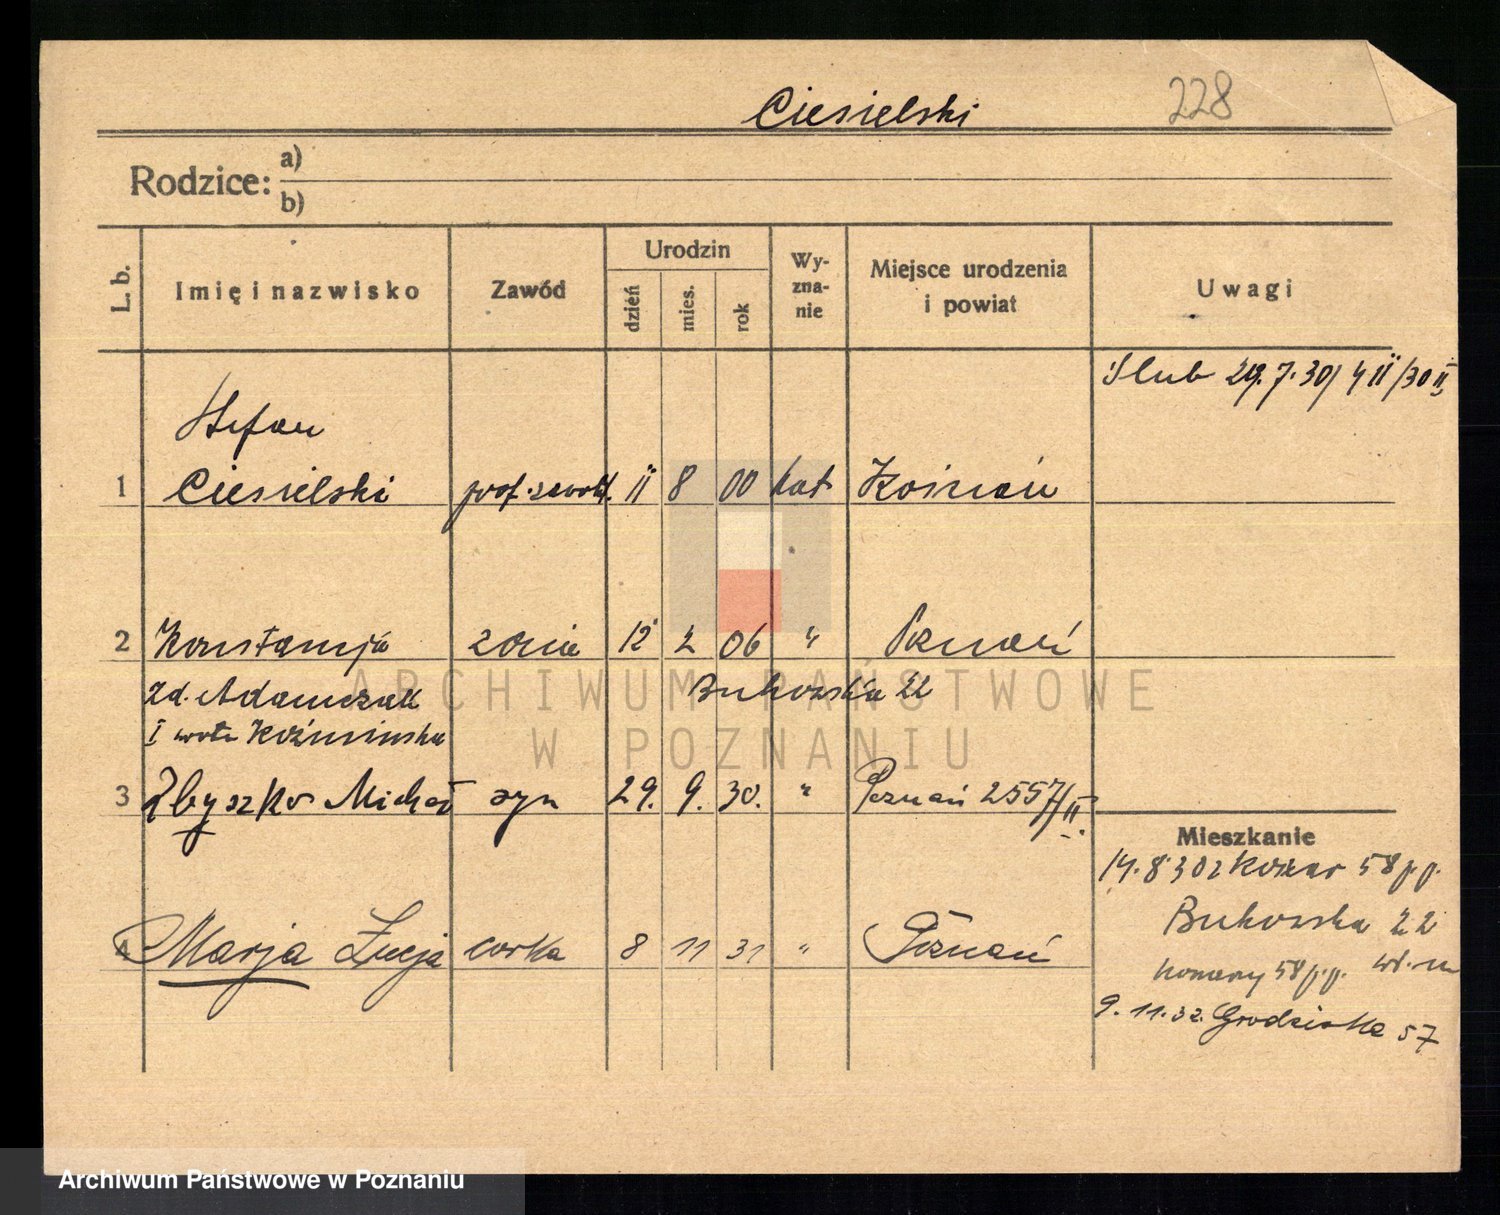 Ciesielski 228
Rodzice: a)
b)
L. b. Imię i nazwisko Zawód Urodzin dzień mies. rok Wy-zna-nie Miejsce urodzenia i powiat Uwagi
Slub 29.7.30
Stefan
1 Ciesielski prof. 11 8 00 kat Kościan
2 Konstancja żona 12 2 06 " Poznań
zd. Adamczak Bukowska 22
I
3 Zbyszko Michał syn 29. 9. 30. " Poznań 2557/II.
Mieszkanie
14.8.30 58 p.p.
4 Marja Łucja corka 8 11 31 " Poznań
Bukowska 22
58 p.p.
9.11.32. Grodziska 57
ARCHIWUM PAŃSTWOWE
W POZNANIU
Archiwum Państwowe w Poznaniu